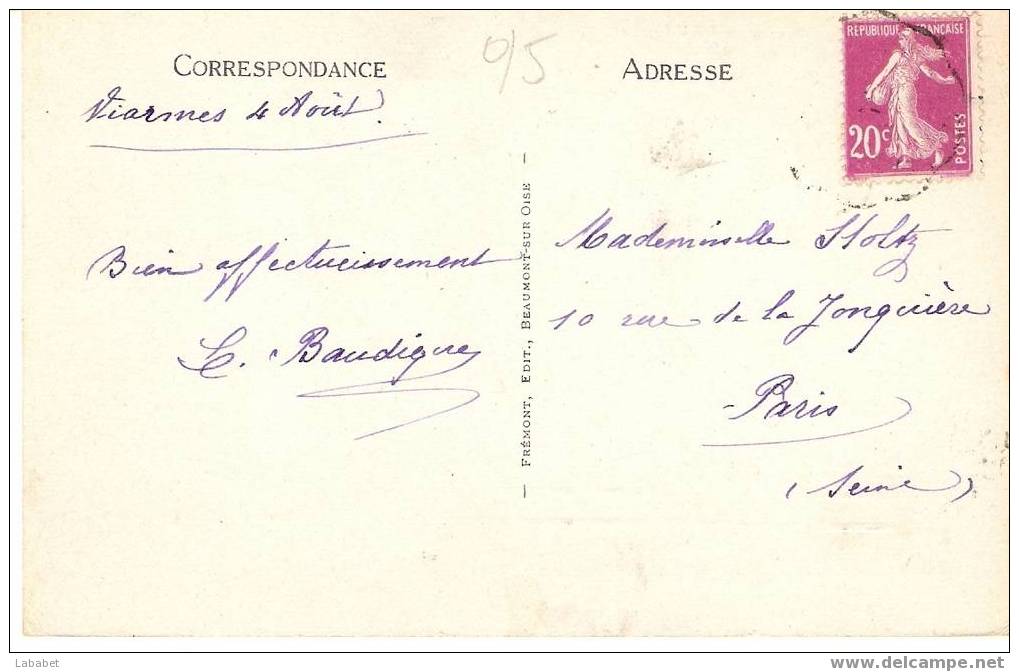 CORRESPONDANCE
Viarmes 4 Août.
Bien affectueissement
L. Baudigny
0/5
FRÉMONT, EDIT., BEAUMONT-SUR OISE
ADRESSE
RÉPUBLIQUE FRANÇAISE
20c
POSTES
Mademoiselle Stoltz
10 rue de la Jonquière
Paris
(Seine)
Lababet
www.delcampe.net